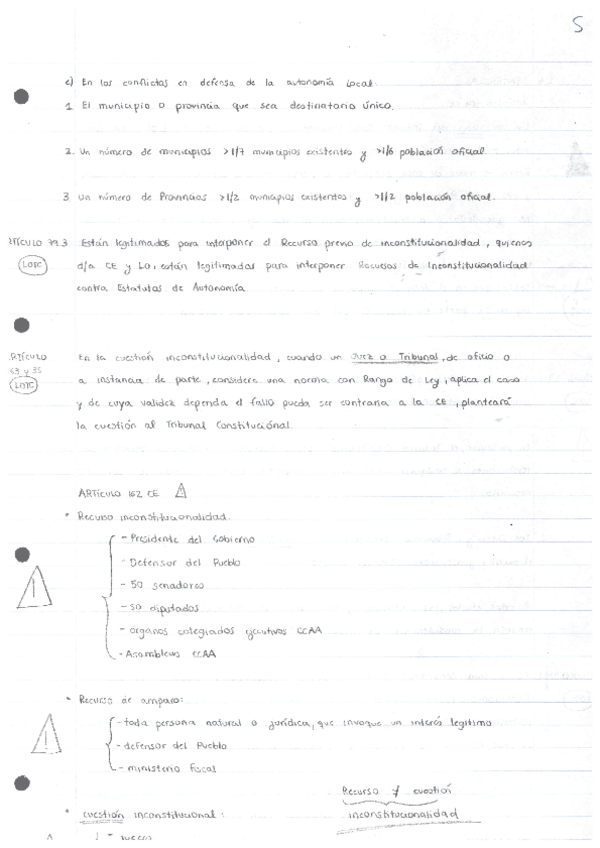 5
e) En los conflictos en defensa de la autonomía local.
1. El municipio o provincia que sea destinatario único.
2. Un número de municipios >1/7 municipios existentes y >1/6 población oficial
3. Un número de Provincias >1/2 municipios existentes y >1/2 población oficial.
ARTÍCULO 79.3 Están legitimados para interponer el Recurso previo de inconstitucionalidad, quienes
LOTC d/a CE y LO, están legitimados para interponer Recursos de Inconstitucionalidad
contra Estatutos de Autonomía.
ARTÍCULO En la cuestión inconstitucionalidad, cuando un Juez o Tribunal, de oficio o
y 35 a instancia de parte, considere una norma con Rango de Ley, aplica el caso
LOTC y de cuya validez dependa el fallo pueda ser contraria a la CE, planteará
la cuestión al Tribunal Constitucional.
ARTÍCULO 162 CE
• Recurso inconstitucionalidad.
- Presidente del Gobierno
- Defensor del Pueblo
- 50 senadores
- 50 diputados
- organos colegiados ejecutivos CCAA
- Asambleas CCAA
• Recurso de amparo:
- toda persona natural o jurídica, que invoque un interés legítimo
- defensor del Pueblo
- ministerio fiscal
Recurso ≠ cuestión
• cuestión inconstitucional: inconstitucionalidad